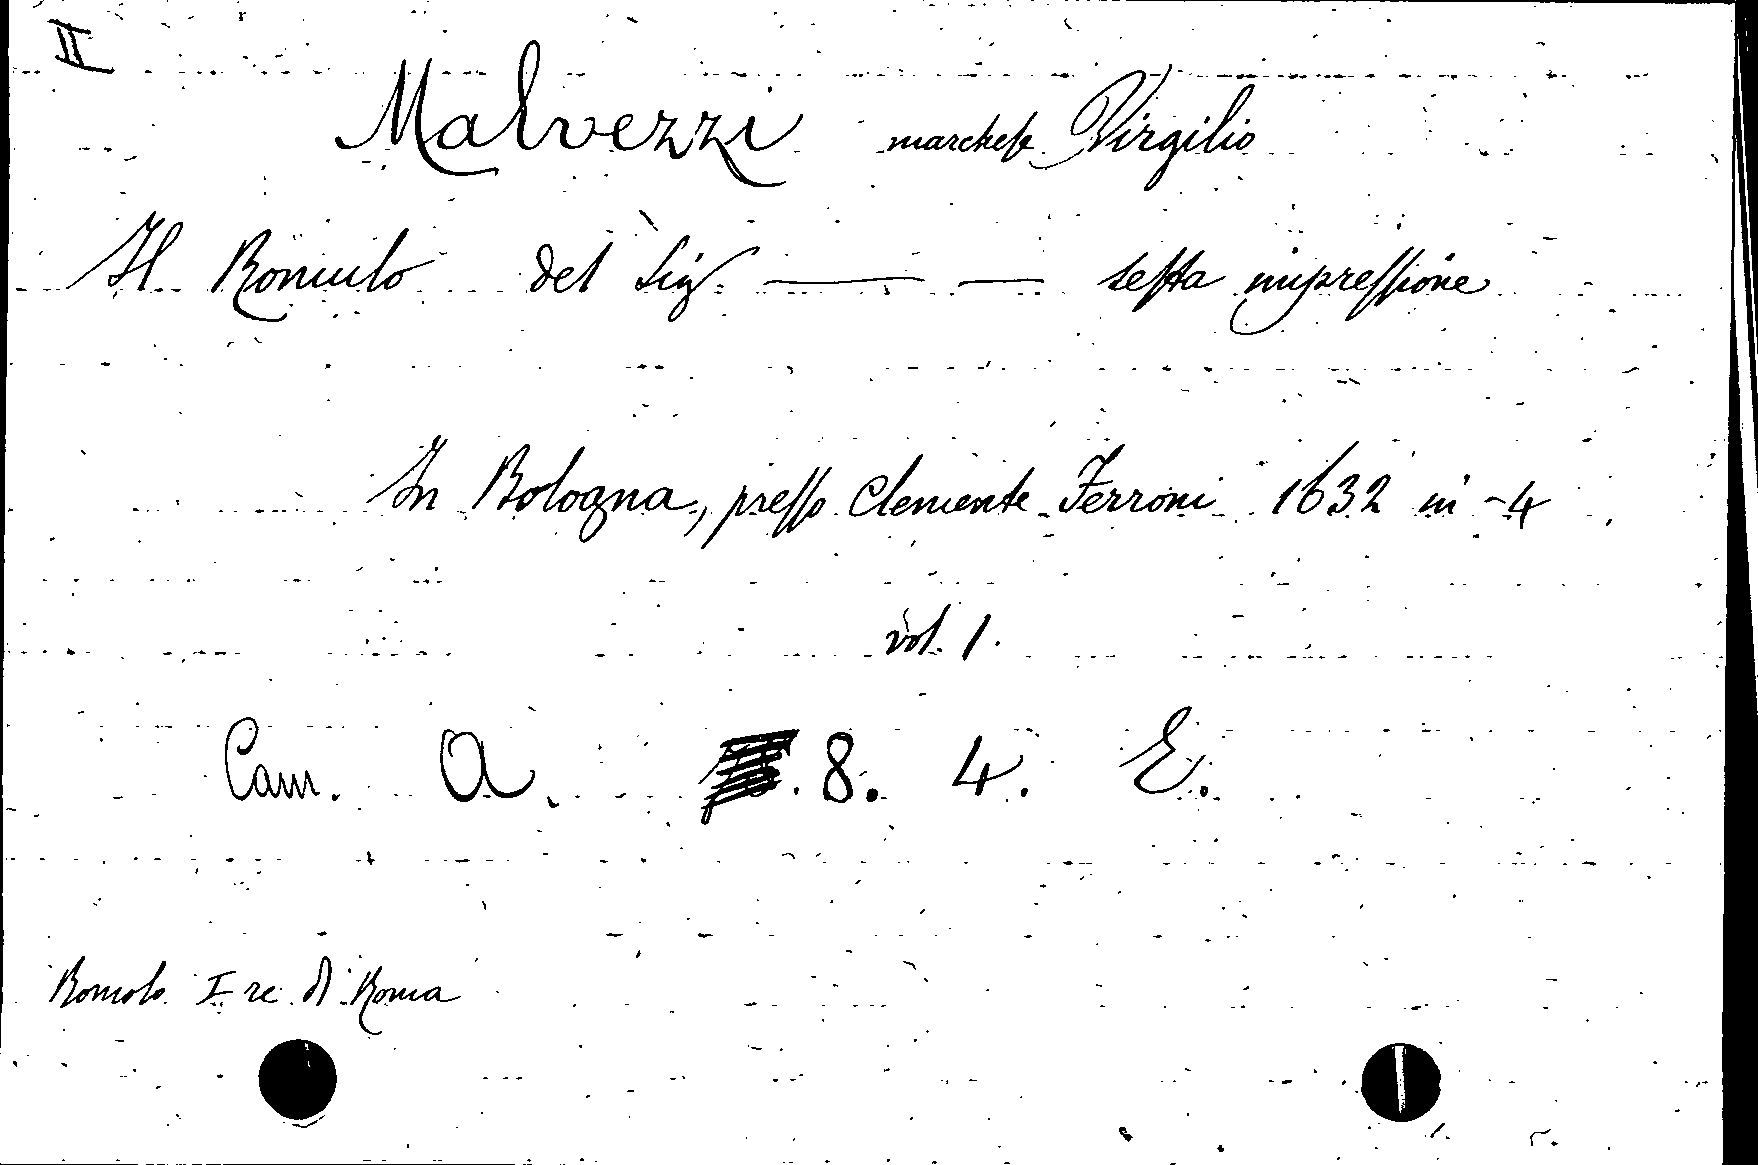 II
Malvezzi marchese Virgilio
Il Romulo del Sig. ——— —— sesta impressione
In Bologna, presso Clemente Ferroni 1632 in-4
vol. 1.
Cam. A. 8. 4. E.
Romolo I re di Roma